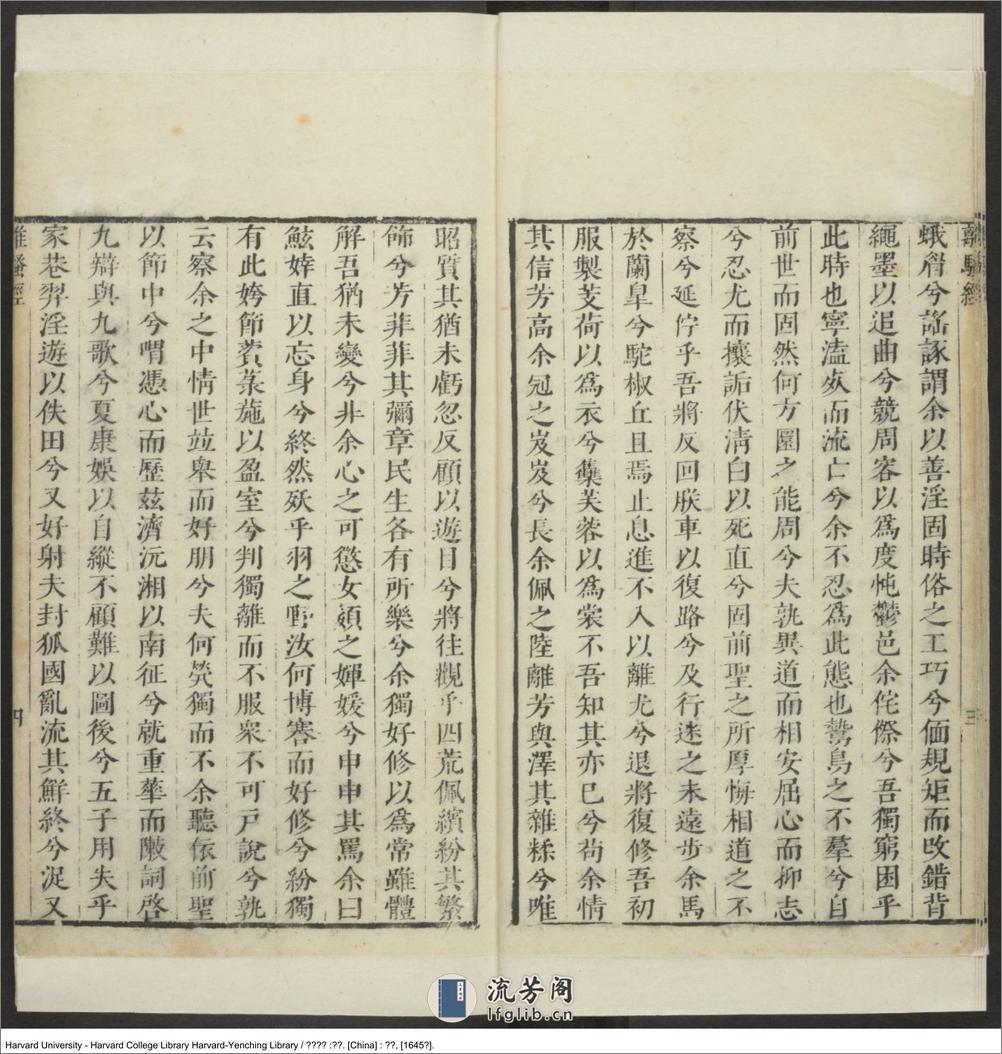 離騷經
三
蛾眉兮謠諑謂余以善淫固時俗之工巧兮偭規矩而改錯背
繩墨以追曲兮競周容以爲度忳鬱邑余侘傺兮吾獨窮困乎
此時也寧溘死而流亡兮余不忍爲此態也鷙鳥之不羣兮自
前世而固然何方圜之能周兮夫孰異道而相安屈心而抑志
兮忍尤而攘詬伏淸白以死直兮固前聖之所厚悔相道之不
察兮延佇乎吾將反回朕車以復路兮及行迷之未遠步余馬
於蘭皐兮駝椒丘且焉止息進不入以離尤兮退將復修吾初
服製芰荷以爲衣兮集芙蓉以爲裳不吾知其亦已兮苟余情
其信芳高余冠之岌岌兮長余佩之陸離芳與澤其雜糅兮唯
昭質其猶未虧忽反顧以遊目兮將往觀乎四荒佩繽紛其繁
飾兮芳菲菲其彌章民生各有所樂兮余獨好修以爲常雖體
解吾猶未變兮非余心之可懲女嬃之嬋媛兮申申其罵余曰
鮌婞直以忘身兮終然殀乎羽之野汝何博謇而好修兮紛獨
有此姱節薋菉葹以盈室兮判獨離而不服衆不可戸說兮孰
云察余之中情世竝舉而好朋兮夫何煢獨而不余聽依前聖
以節中兮喟憑心而歷玆濟沅湘以南征兮就重華而敶詞啓
九辯與九歌兮夏康娛以自縱不顧難以圖後兮五子用失乎
家巷羿淫遊以佚田兮又好射夫封狐國亂流其鮮終兮浞又
離騷經
四
流芳阁
lfglib.cn
Harvard University - Harvard College Library Harvard-Yenching Library / ???? :??. [China] : ??, [1645?].